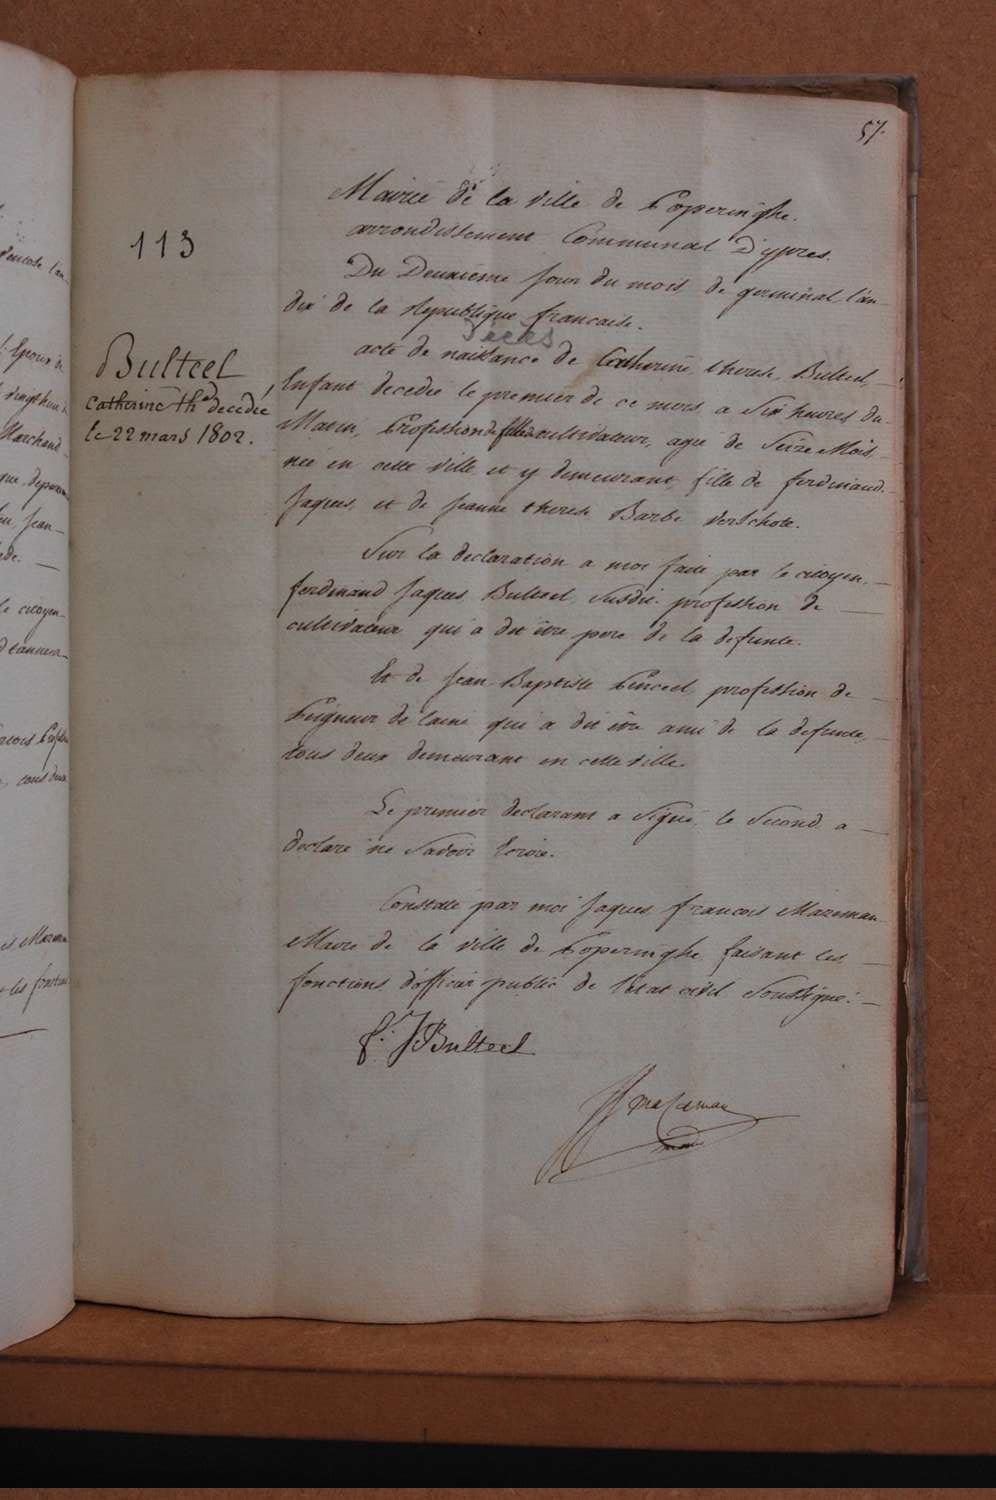 57.
Mairie de la ville de Poperinghe.
arrondissement Communal D'ypres.
113
Du Deuxieme jour du mois de germinal l'an
dix de la Republique francaise.
Décès
acte de naissance de Catherine therese Bulteel
Bulteel
Catherine th.e decedée
le 22 mars 1802.
Enfant decedée le premier de ce mois a Six heures du
Matin, Profession de fille de cultivateur, agée de Seize Mois
née en cette ville et y demeurant, fille de ferdinand
Jaques, et de Jeanne therese Barbe verschote.
Sur la declaration a moi faite par le citoyen
ferdinand Jaques Bulteel Susdit profession de
cultivateur qui a dit être pere de la defunte.
Et de Jean Baptiste Pinceel profession de
Peigneur de laine qui a dit être ami de la defunte,
tous deux demeurant en cette ville.
Le premier declarant a Signé, le Second a
declaré ne Savoir Ecrire.
Constaté par moi Jaques francois Mazeman
Maire de la ville de Poperinghe faisant les
fonctions d'officier public de l'etat civil Soussigné:
f. J Bulteel
JJ Mazeman
l'an
Epoux de
Marchand
Jean
le citoyen
tanneur
tous deux
les fonctions